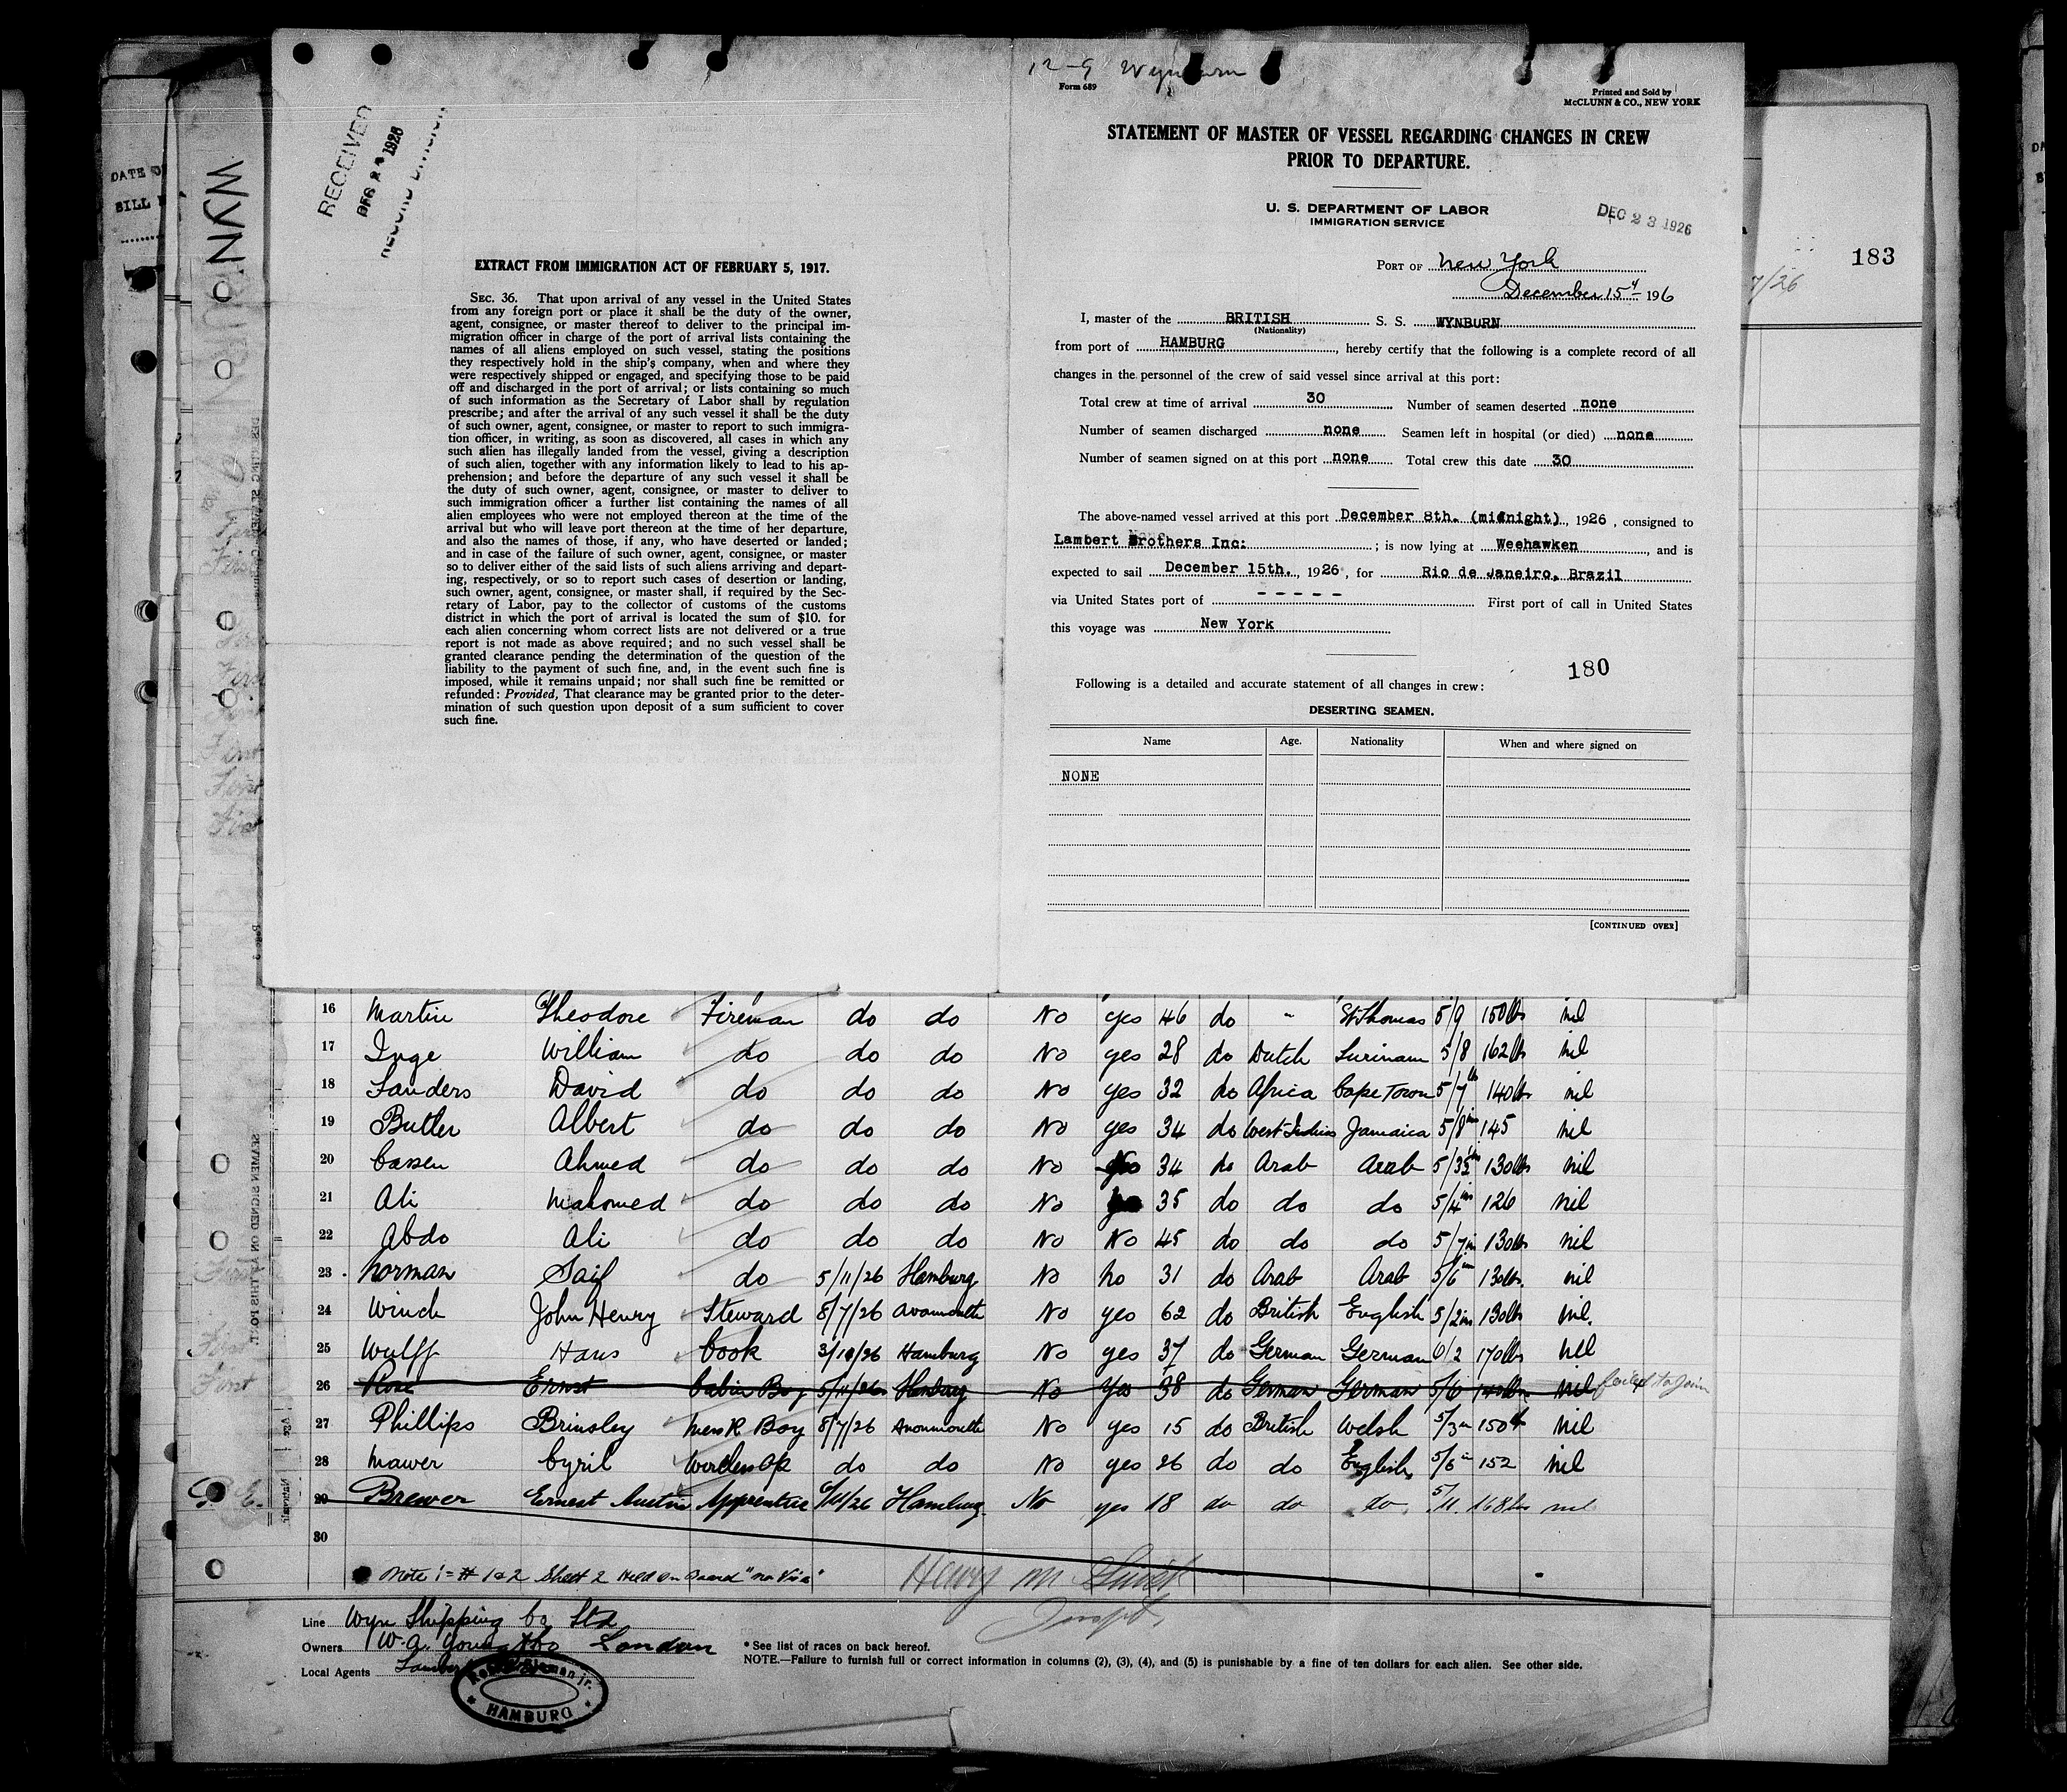 12-9 Wynburn
Form 689
Printed and Sold by
McCLUNN & CO., NEW YORK
RECEIVED
DEC 1926
RECORD DIVISION
EXTRACT FROM IMMIGRATION ACT OF FEBRUARY 5, 1917.
SEC. 36. That upon arrival of any vessel in the United States
from any foreign port or place it shall be the duty of the owner,
agent, consignee, or master thereof to deliver to the principal im-
migration officer in charge of the port of arrival lists containing the
names of all aliens employed on such vessel, stating the positions
they respectively hold in the ship's company, when and where they
were respectively shipped or engaged, and specifying those to be paid
off and discharged in the port of arrival; or lists containing so much
of such information as the Secretary of Labor shall by regulation
prescribe; and after the arrival of any such vessel it shall be the duty
of such owner, agent, consignee, or master to report to such immigra-
tion officer, in writing, as soon as discovered, all cases in which any
such alien has illegally landed from the vessel, giving a description
of such alien, together with any information likely to lead to his ap-
prehension; and before the departure of any such vessel it shall be
the duty of such owner, agent, consignee, or master to deliver to
such immigration officer a further list containing the names of all
alien employees who were not employed thereon at the time of the
arrival but who will leave port thereon at the time of her departure,
and also the names of those, if any, who have deserted or landed;
and in case of the failure of such owner, agent, consignee, or master
so to deliver either of the said lists of such aliens arriving and depart-
ing, respectively, or so to report such cases of desertion or landing,
such owner, agent, consignee, or master shall, if required by the Sec-
retary of Labor, pay to the collector of customs of the customs
district in which the port of arrival is located the sum of $10. for
each alien concerning whom correct lists are not delivered or a true
report is not made as above required; and no such vessel shall be
granted clearance pending the determination of the question of the
liability to the payment of such fine, and, in the event such fine is
imposed, while it remains unpaid; nor shall such fine be remitted or
refunded: Provided, That clearance may be granted prior to the deter-
mination of such question upon deposit of a sum sufficient to cover
such fine.
STATEMENT OF MASTER OF VESSEL REGARDING CHANGES IN CREW
PRIOR TO DEPARTURE.
U. S. DEPARTMENT OF LABOR
IMMIGRATION SERVICE
DEC 23 1926
PORT OF New York
December 15th 1926
I, master of the BRITISH S. S. WYNBURN
(Nationality)
from port of HAMBURG, hereby certify that the following is a complete record of all
changes in the personnel of the crew of said vessel since arrival at this port:
Total crew at time of arrival 30 Number of seamen deserted none
Number of seamen discharged none Seamen left in hospital (or died) none
Number of seamen signed on at this port none Total crew this date 30
The above-named vessel arrived at this port December 8th. (midnight), 1926, consigned to
Lambert Brothers Inc: ; is now lying at Weehawken, and is
expected to sail December 15th., 1926, for Rio de Janeiro, Brazil
via United States port of - - - - - First port of call in United States
this voyage was New York
180
Following is a detailed and accurate statement of all changes in crew:
DESERTING SEAMEN.
Name Age. Nationality When and where signed on
NONE
[CONTINUED OVER]
183
7/26
WYNBURN
DATE O
BILL
16 Martin Theodore Fireman do do No yes 46 do " St Thomas 5/9 150lbs nil
17 Inge William do do do No yes 28 do Dutch Surinam 5/8 162lb nil
18 Sanders David do do do No yes 32 do Africa Cape Town 5/7 140lbs nil
19 Butler Albert do do do No yes 34 do West Indies Jamaica 5/8 145 nil
20 Cassen Ahmed do do do No No 34 do Arab Arab 5/3 130lbs nil
21 Ali Mahomed do do do No 35 do do do 5/4 126 nil
22 Abdo Ali do do do No No 45 do do do 5/7 130lbs nil
23 Norman Saif do 5/11/26 Hamburg No No 31 do Arab Arab 5/6 130lbs. nil
24 Winch John Henry Steward 8/7/26 Avonmouth No yes 62 do British English 5/2 130lbs nil.
25 Wulff Hans Cook 3/10/26 Hamburg No yes 37 do German German 6/2 170lbs nil
26 Rose Ernst Cabin Boy 5/11/26 Hamburg No Yes 38 do German German 5/6 nil failed to join
27 Phillips Brinsley Mess R Boy 8/7/26 Avonmouth No yes 15 do British Welsh 5/3 150 nil
28 Mawer Cyril Wireless Op do do No yes 26 do do English 5/6 152 nil
29 Brewer Ernest Austin Apprentice 6/11/26 Hamburg. No yes 18 do do do 5/11. 168lbs nil
30
Note:- # 1&2 Sheet 2 Held on Board "no Visa"
Line Wyn Shipping Co Ltd
Owners W. A. Young & Co London
Local Agents Lambert
HAMBURG
* See list of races on back hereof.
NOTE.—Failure to furnish full or correct information in columns (2), (3), (4), and (5) is punishable by a fine of ten dollars for each alien. See other side.